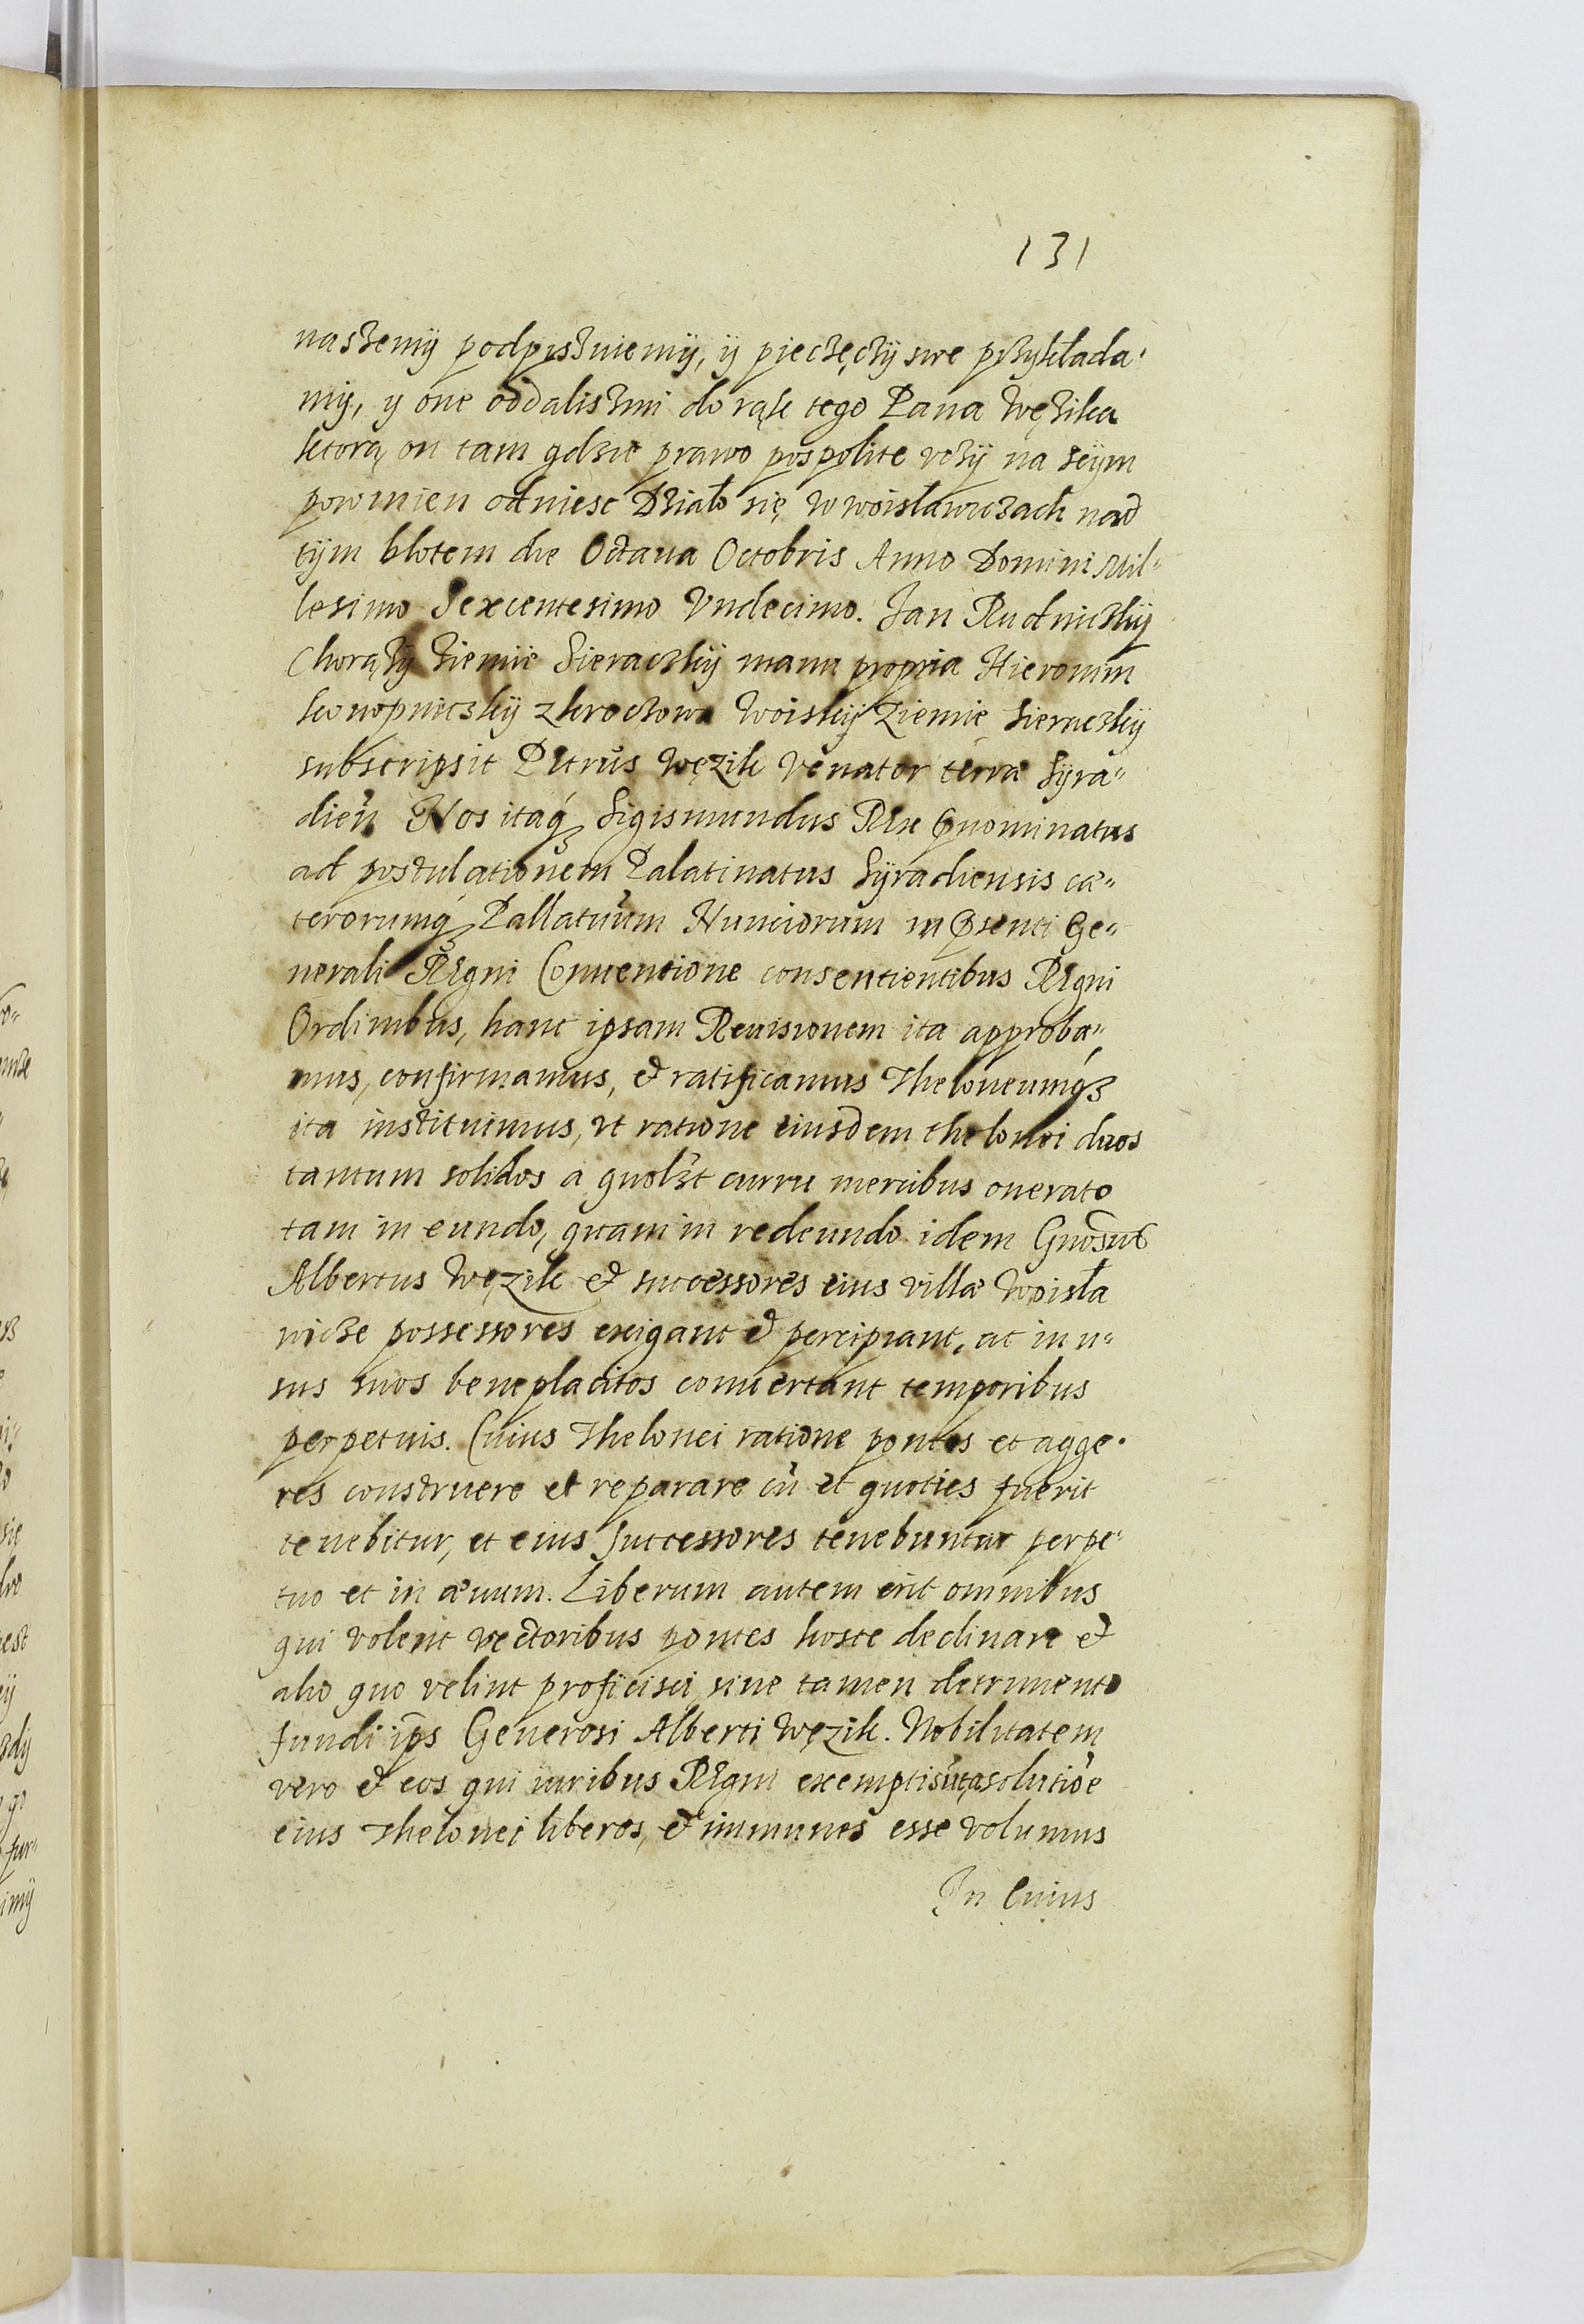 131
naszemy podpiszuiemy, y pieczęczy swe przykłada-
my, y one oddaliszmi do rąk tego Pana Wężika
ktorą on tam gdzie prawo pospolite vczy na seym
powinien odniesc Działo się w woisławiczach nad
tym błotem die Octaua Octobris Anno Domini Mil-
lesimo Sexcentesimo Vndecimo. Jan Rudniczky
Chorąży ziemie Sieraczky manu propria Hieronim
konopniczky z kroczowa Woisky ziemie Sieraczky
subscripsit Petrus Węzik Venator terræ Syra-
dien̄ Nos itaq́ȝ Sigismundus Rex p̄nominatus
ad postulationem Palatinatus Syradiensis cæ-
terorumq́ȝ Pallatuum Nunciorum in p̄senti Ge-
nerali Regni Conuentione consentientibus Regni
Ordinibus, hanc ipsam Reuisionem ita approba-
mus, confirmamus, et ratificamus Theloneumq́ȝ
ita instituimus, vt ratione eiusdem thelonei duos
tantum solidos a quolȝt curru mercibus onerato
tam in eundo, quam in redeundo idem Gn̄osus
Albertus Węzik et successores eius villæ Woisła
wicze possessores exigant et percipiant, ac in u-
sus suos beneplacitos conuertant temporibus
perpetuis. Cuius Thelonei ratione pontes et agge-
res construere et reparare cū et quoties fuerit
tenebitur, et eius Successores tenebuntur perpe-
tuo et in æuum. Liberum autem erit omnibus
qui volent vectoribus pontes hosce declinare et
alio quo velint proficisci sine tamen detrimento
fundi ip̄s Generosi Alberti Węzik. Nobilitatem
vero et eos qui iuribus Regni exempti sūt a solutiōe
eius Thelonei liberos, et immunes esse volumus
In Cuius